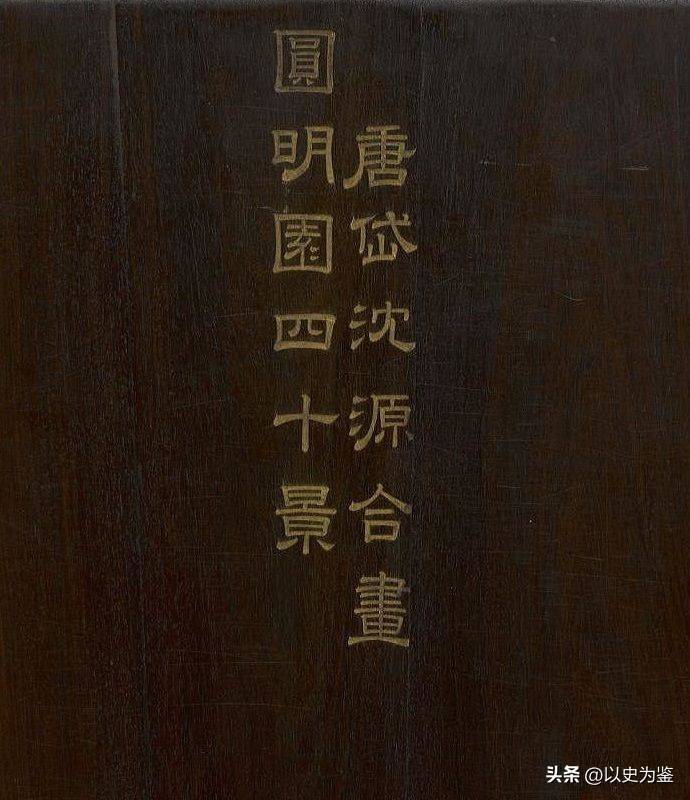 唐岱沈源合畫
圓明園四十景
头条 @以史为鉴